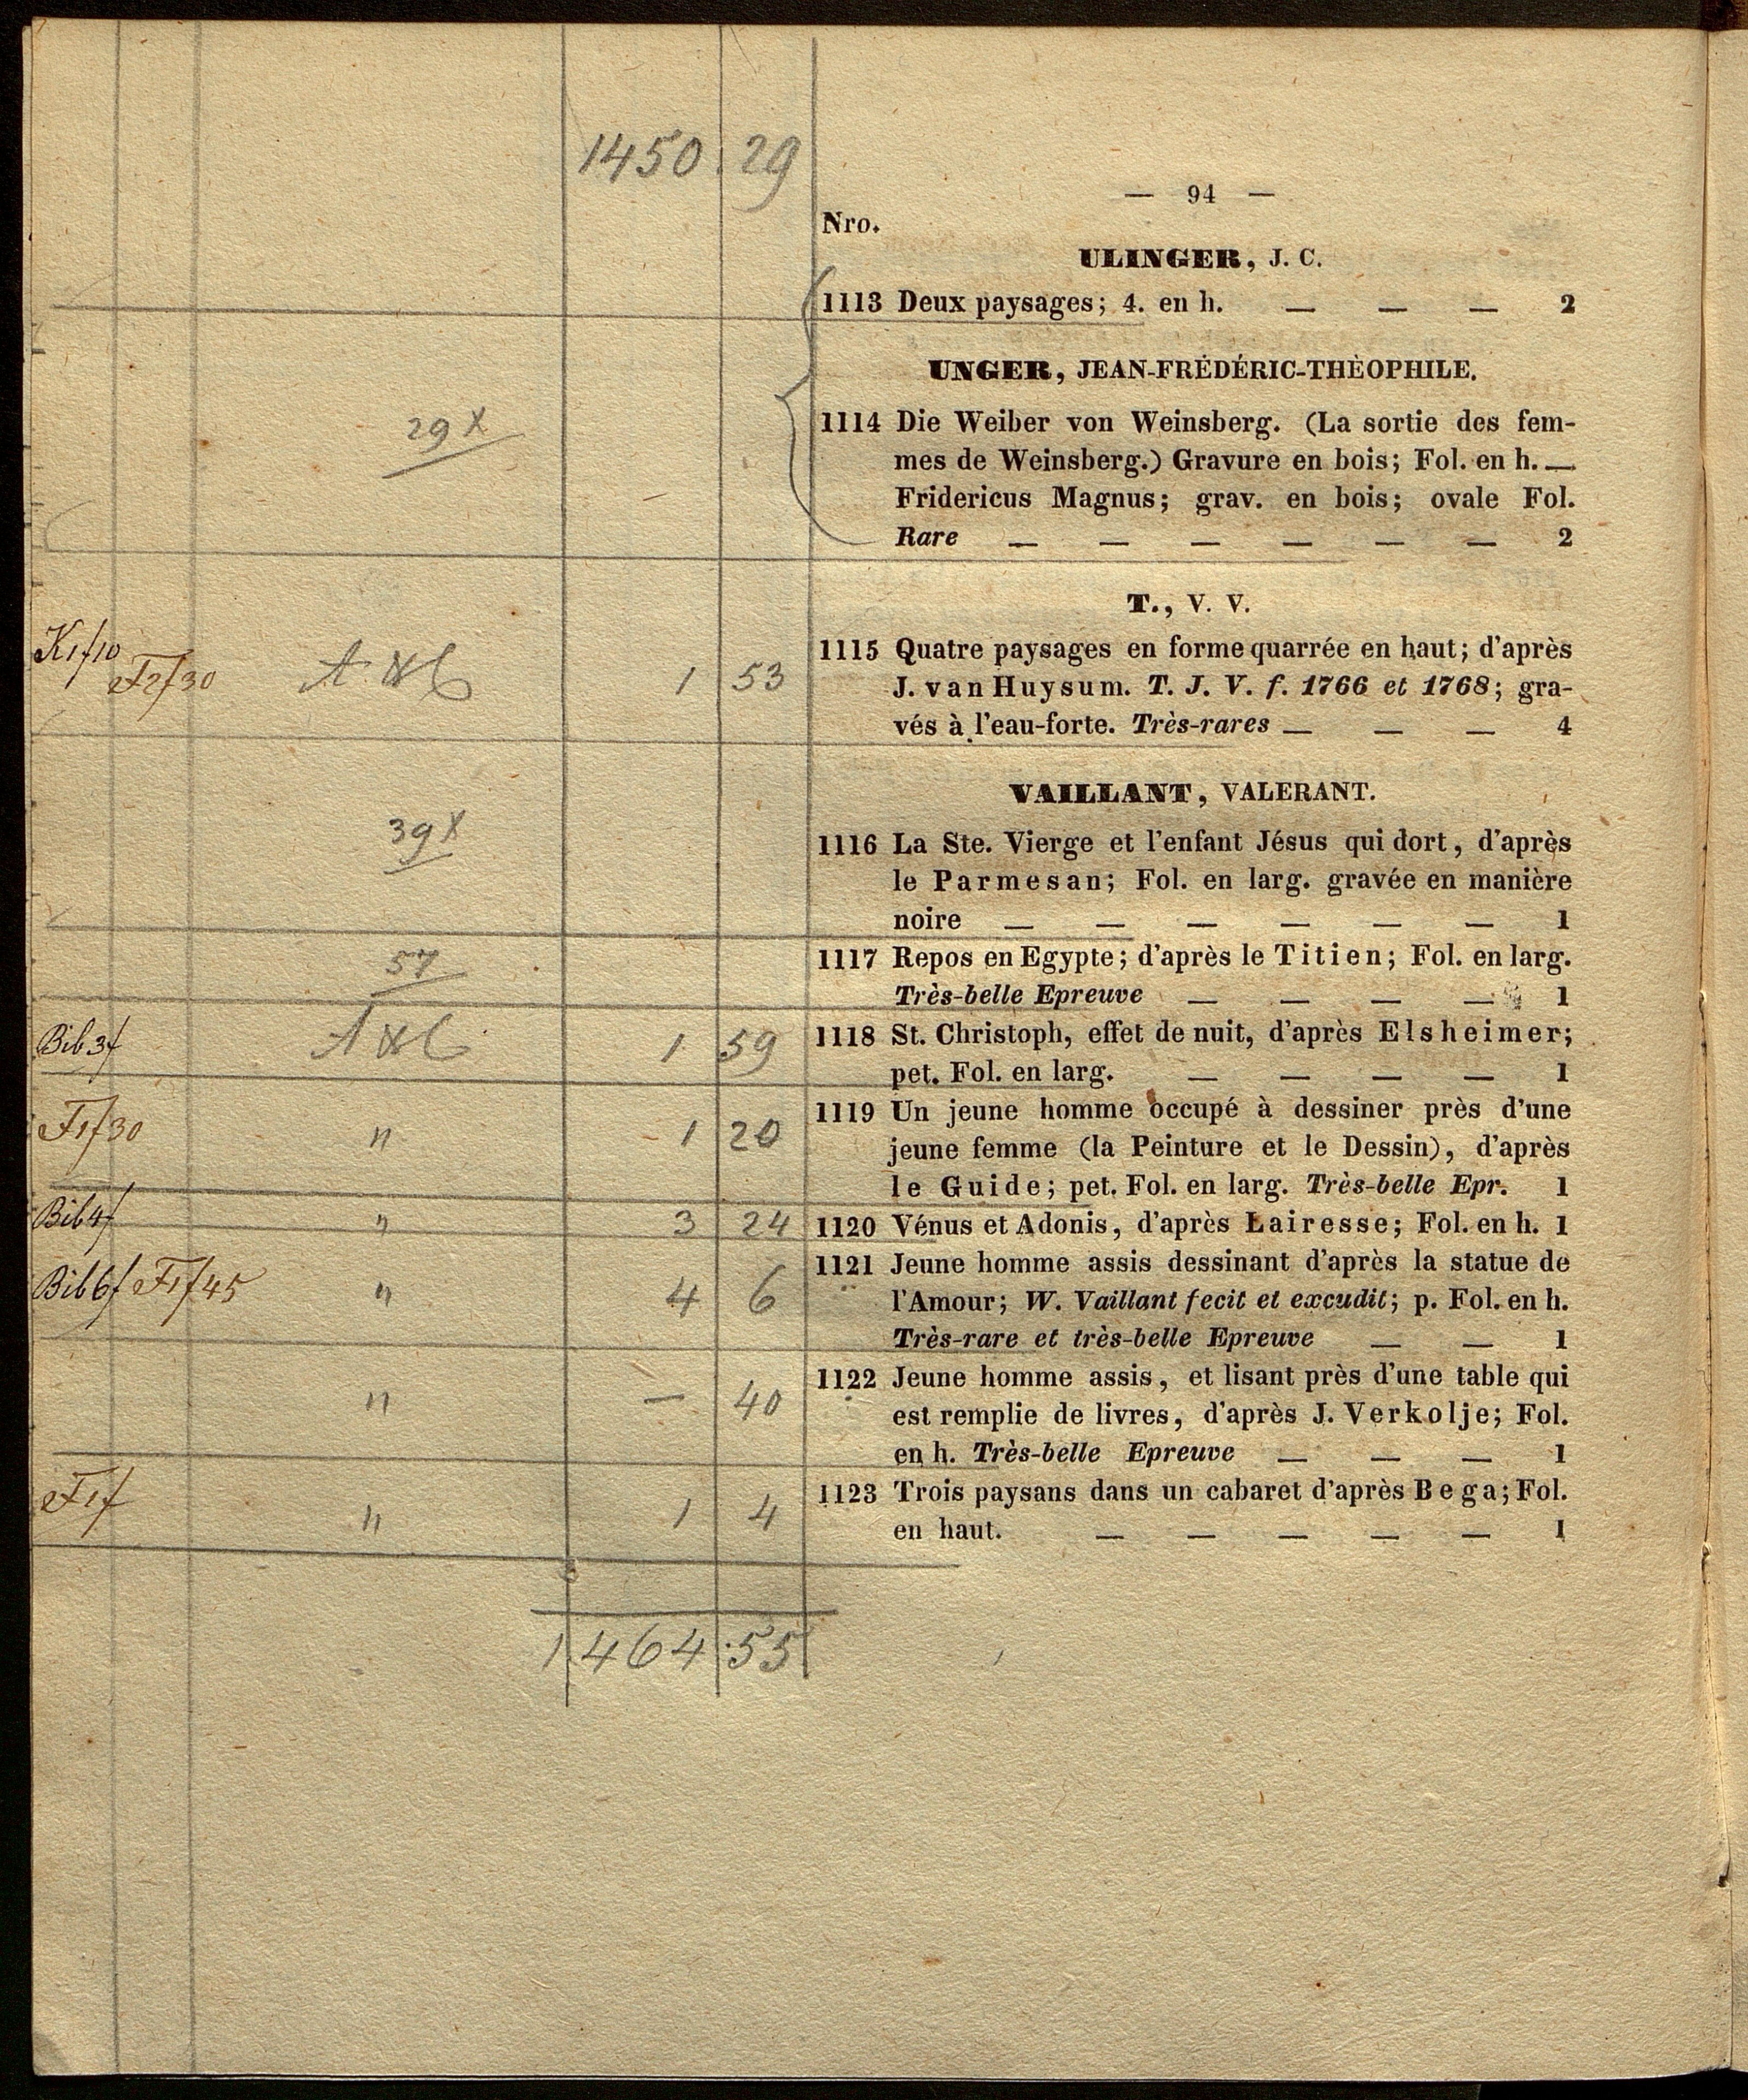 1450. 29
— 94 —
Nro.
ULINGER, J. C.
1113 Deux paysages; 4. en h. — — — 2
UNGER, JEAN-FRÉDÉRIC-THÉOPHILE.
29 x
1114 Die Weiber von Weinsberg. (La sortie des fem-
mes de Weinsberg.) Gravure en bois; Fol. en h. —
Fridericus Magnus; grav. en bois; ovale Fol.
Rare — — — — — — 2
T., V. V.
K1f10 F2f30 1 53
1115 Quatre paysages en forme quarrée en haut; d'après
J. van Huysum. T. J. V. f. 1766 et 1768; gra-
vés à l'eau-forte. Très-rares — — — 4
VAILLANT, VALERANT.
39 x
1116 La Ste. Vierge et l'enfant Jésus qui dort, d'après
le Parmesan; Fol. en larg. gravée en manière
noire — — — — — — 1
57
1117 Repos en Egypte; d'après le Titien; Fol. en larg.
Très-belle Epreuve — — — — 1
Bib 3f 1 59
1118 St. Christoph, effet de nuit, d'après Elsheimer;
pet. Fol. en larg. — — — — 1
F1f30 " 1 20
1119 Un jeune homme occupé à dessiner près d'une
jeune femme (la Peinture et le Dessin), d'après
le Guide; pet. Fol. en larg. Très-belle Epr. 1
Bib4f " 3 24
1120 Vénus et Adonis, d'après Lairesse; Fol. en h. 1
Bib6f F1f45 " 4 6
1121 Jeune homme assis dessinant d'après la statue de
l'Amour; W. Vaillant fecit et excudit; p. Fol. en h.
Très-rare et très-belle Epreuve — — 1
" — 40
1122 Jeune homme assis, et lisant près d'une table qui
est remplie de livres, d'après J. Verkolje; Fol.
en h. Très-belle Epreuve — — — 1
F1f " 1 4
1123 Trois paysans dans un cabaret d'après Bega; Fol.
en haut. — — — — — 1
1464.55